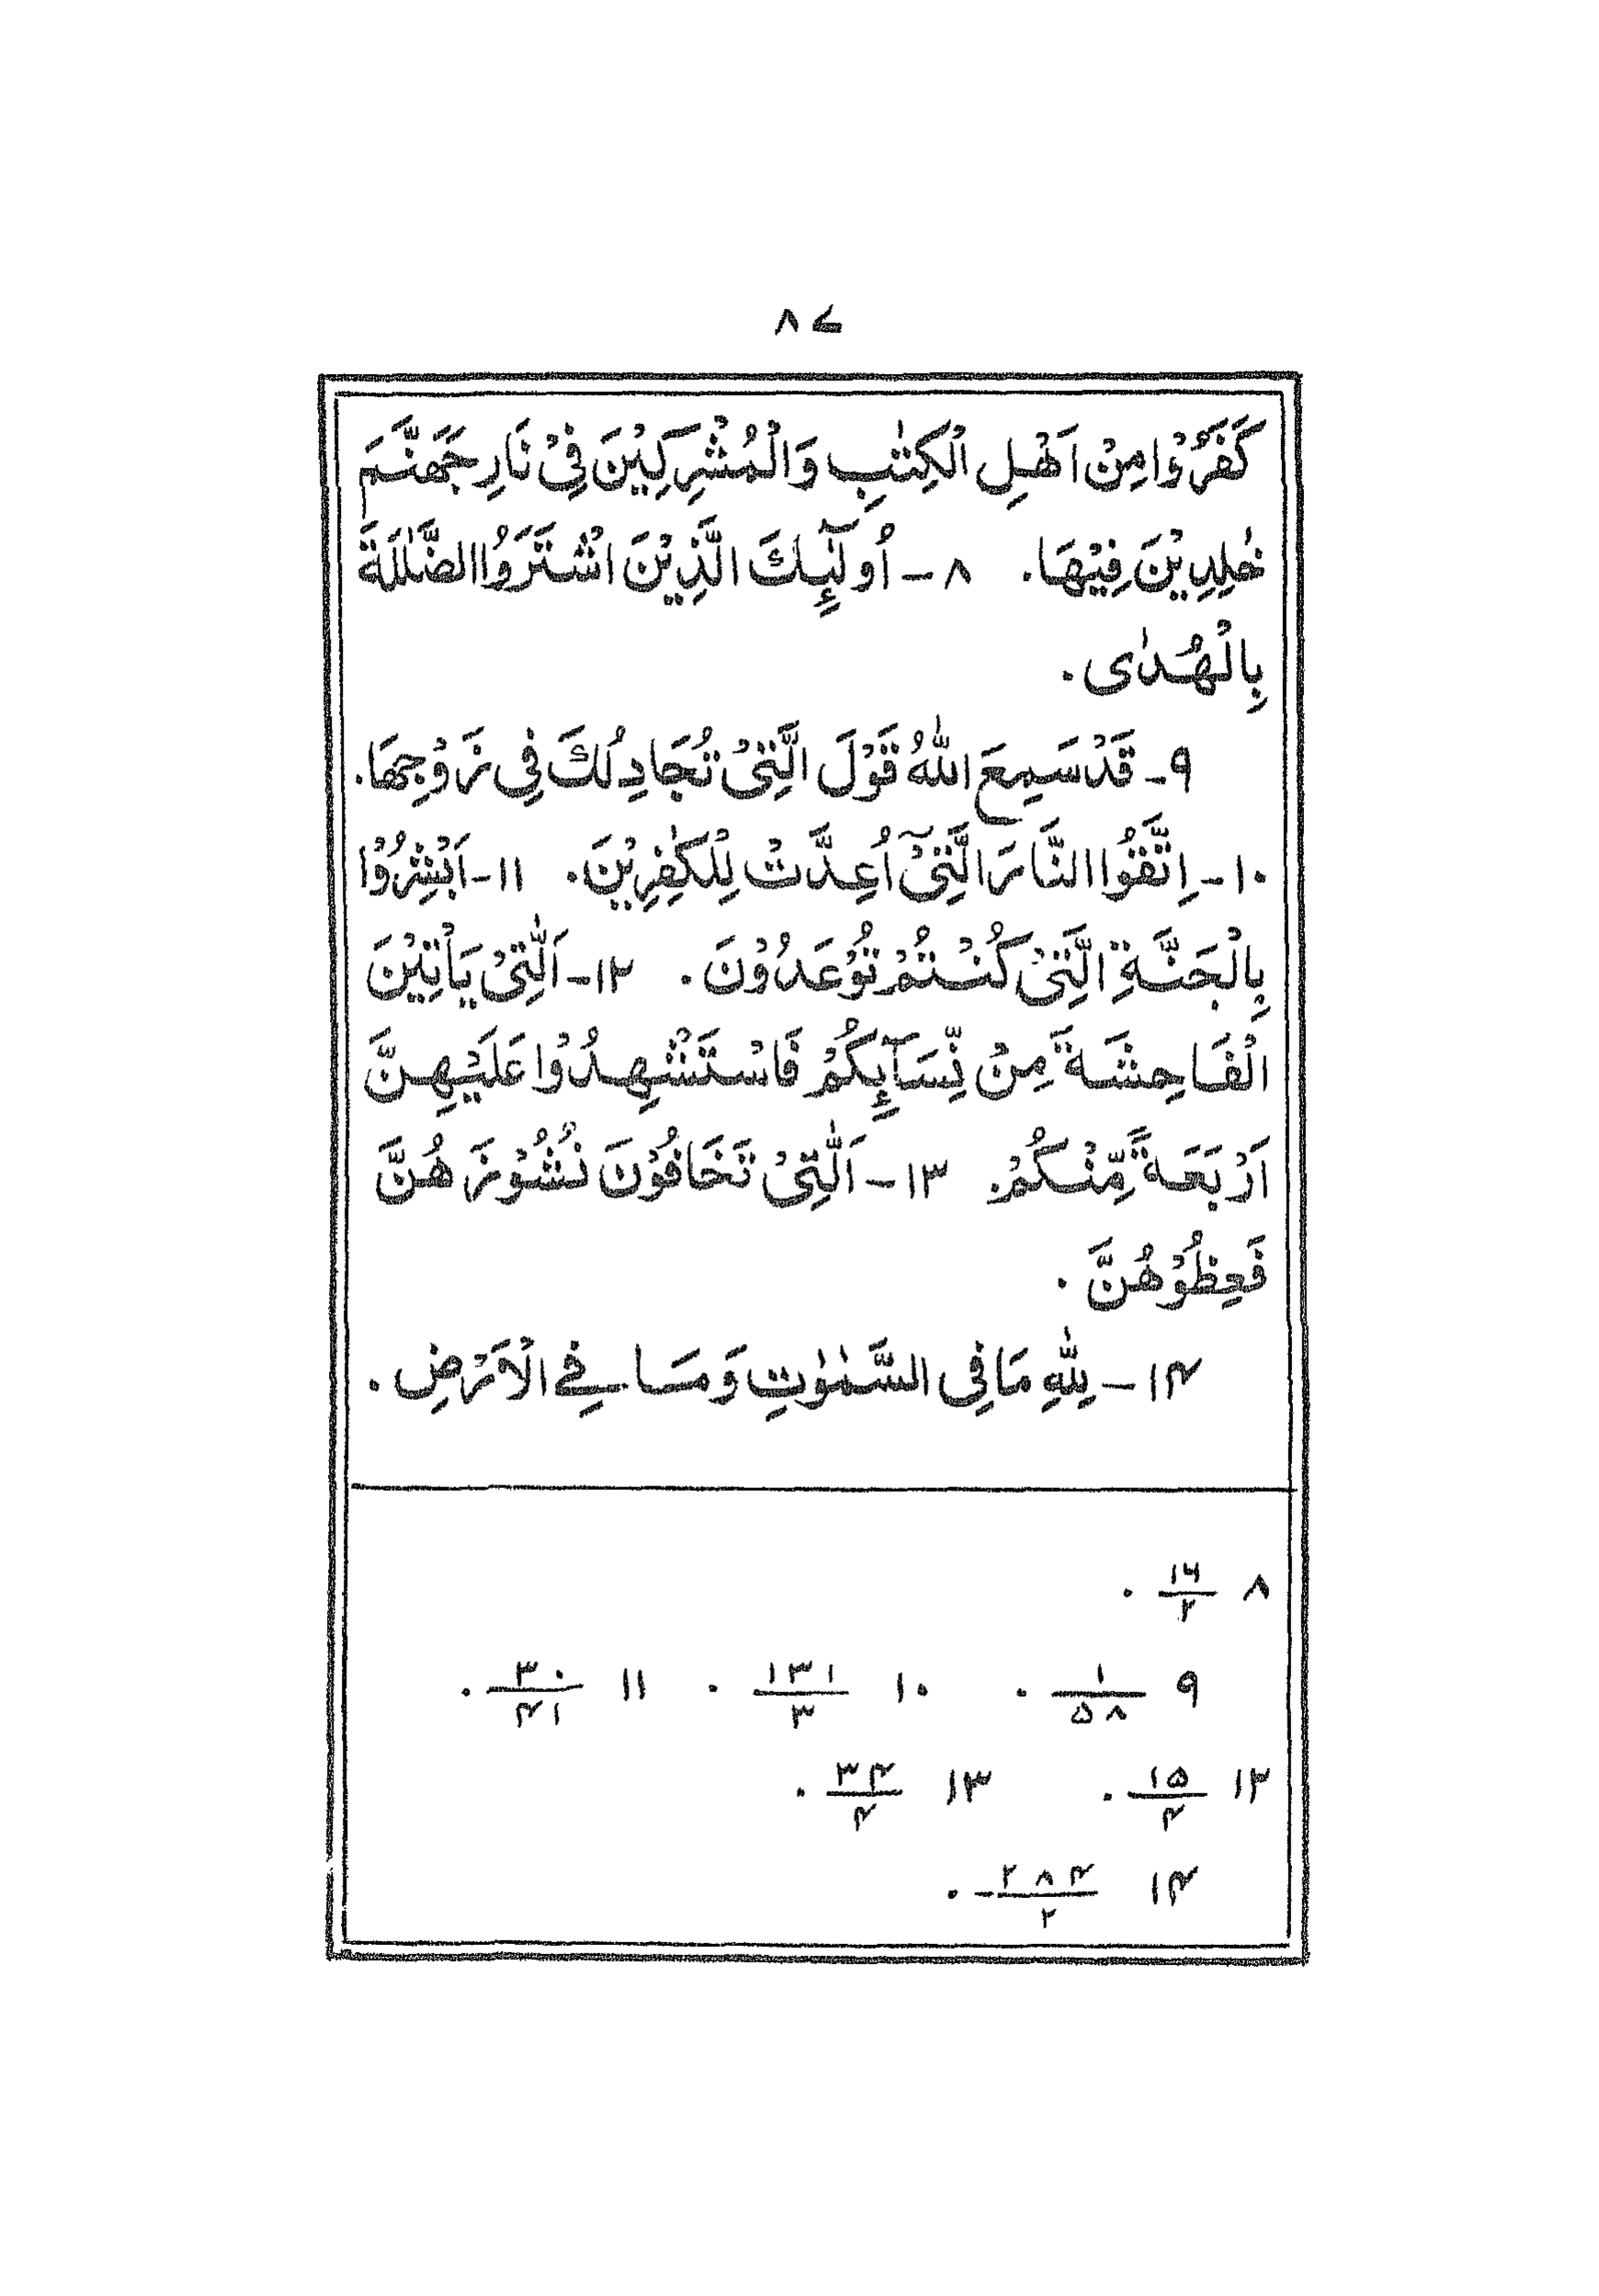 ۸۷
كَفَرُوْا مِنْ اَهْلِ الْكِتٰبِ وَالْمُشْرِكِيْنَ فِيْ نَارِ جَهَنَّمَ
خٰلِدِيْنَ فِيْهَا. ۸ - اُولٰٓئِكَ الَّذِيْنَ اشْتَرَوُا الضَّلٰلَةَ
بِالْهُدٰى.
۹ - قَدْ سَمِعَ اللّٰهُ قَوْلَ الَّتِيْ تُجَادِلُكَ فِي زَوْجِهَا.
۱۰ - اِتَّقُوا النَّارَ الَّتِيْٓ اُعِدَّتْ لِلْكٰفِرِيْنَ. ۱۱ - اَبْشِرُوْا
بِالْجَنَّةِ الَّتِيْ كُنْتُمْ تُوْعَدُوْنَ. ۱۲ - اَلّٰتِيْ يَاْتِيْنَ
الْفَاحِشَةَ مِنْ نِّسَآئِكُمْ فَاسْتَشْهِدُوْا عَلَيْهِنَّ
اَرْبَعَةً مِّنْكُمْ. ۱۳ - اَلّٰتِيْ تَخَافُوْنَ نُشُوْزَهُنَّ
فَعِظُوْهُنَّ.
۱۴ - لِلّٰهِ مَا فِي السَّمٰوٰتِ وَمَا فِي الْاَرْضِ.
۸ ۱۶/۲ .
۹ ۱/۵۸ . ۱۰ ۱۳۱/۳ . ۱۱ ۳۰/۴۱ .
۱۲ ۱۵/۴ . ۱۳ ۳۴/۴ .
۱۴ ۲۸۴/۲ .